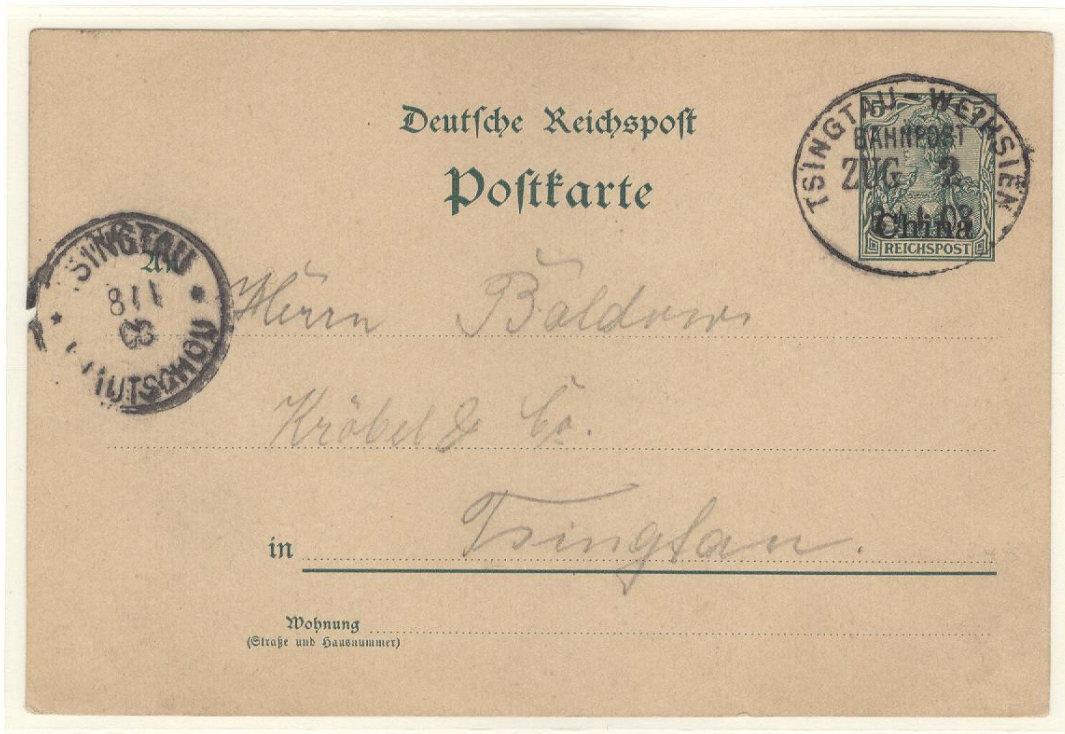 Deutsche Reichspost
Postkarte
5
TSINGTAU - WEIHSIEN
BAHNPOST
ZUG 2
China
REICHSPOST
TSINGTAU
8 11
03
An
Herrn
Kröbel & Co.
in Tsingtau.
Wohnung
(Straße und Hausnummer)